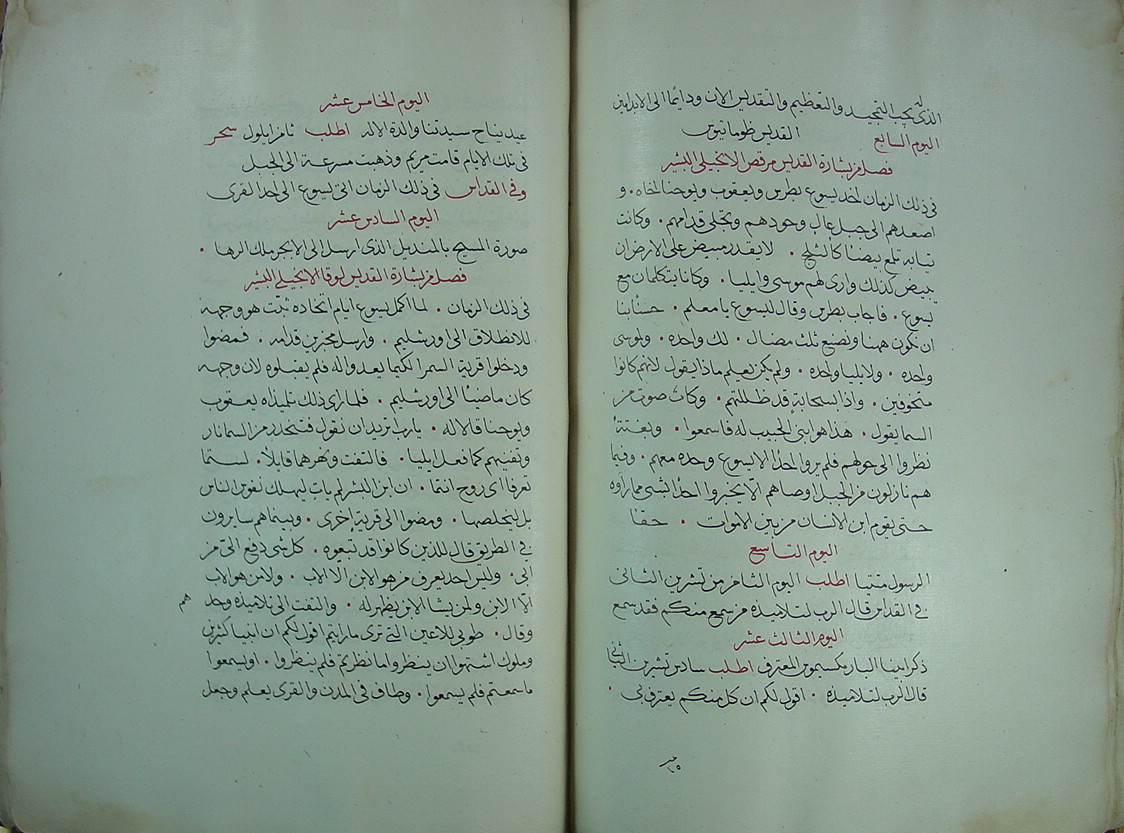 الذي له يجب التمجيد والتعظيم والتقديس الان ودايما الى الابد امين
اليوم السابع القديس ظوماتيوس
فصل من بشارة القديس مرقص الانجيلي البشير
في ذلك الزمان اخذ يسوع بطرس ويعقوب ويوحنا اخاه . و
اصعدهم الى جبل عال وحودهم وتجلى قدامهم . وكانت
ثيابه تلمع بيضا كالثلج . لا يقدر مبيض على الارض ان
يبيض كذلك واري لهم موسى وايليا . وكانا يتكلمان مع
يسوع . فاجاب بطرس وقال ليسوع يا معلم . حسنا بنا
ان نكون ههنا ونصنع ثلث مضال . لك واحده . ولموسى
واحده . ولايليا واحده . ولم يكن يعلم ماذا يقول لانهم كانوا
متخوفين . واذا بسحابة قد ظللتهم . وكان صوت من
السما يقول . هذا هو ابني الحبيب له فاسمعوا . وبغتة
نظروا الى حولهم فلم يروا احدا الا يسوع وحده معهم . وفيما
هم نازلون من الجبل اوصاهم الا يخبروا احدا بشي مما راوه
حتى يقوم ابن الانسان من بين الاموات . حقا
اليوم التاسع
الرسول متيا اطلب اليوم الثامن من تشرين الثاني
في القداس قال الرب لتلاميذه من سمع منكم فقد سمع
اليوم الثالث عشر
ذكر ابينا البار مكسيموس المعترف اطلب سادس تشرين الثاني
قال الرب لتلاميذه . اقول لكم ان كل منكم يعترف بي .
اليوم الخامس عشر
عيد نياح سيدتنا والدة الاله اطلب ثامن ايلول سحر
في تلك الايام قامت مريم وذهبت مسرعة الى الجبل
وفي القداس في ذلك الزمان اتى يسوع الى احد القرى
اليوم السادس عشر
صورة المسيح بالمنديل الذي ارسل الى الابجر ملك الرها .
فصل من بشارة القديس لوقا الانجيلي البشير
في ذلك الزمان . لما اكمل يسوع ايام اتخاده ثبت هو وجهه
للانطلاق الى اورشليم . وارسل مخبرين قدامه . فمضوا
ودخلوا قرية السمرا لكيما يعدوا له فلم يقبلوه لان وجهه
كان ماضيا الى اورشليم . فلما راى ذلك تلميذاه يعقوب
ويوحنا قالا له . يارب تريد ان نقول فتنحدر من السما نار
وتفنيهم كما فعل ايليا . فالتفت ونهرهما قايلا . لستما
تعرفا اي روح انتما . ان ابن البشر لم يات ليهلك نفوس الناس
بل ليخلصها . ومضوا الى قرية اخرى . وبينما هم سايرون
في الطريق قال للذين كانوا قد تبعوه . كل شي دفع الي من
ابي . وليس احد يعرف من هو الابن الا الاب . ولا من هو الاب
الا الابن ولمن يشا الابن يظهر له . والتفت الى تلاميذه وحد
هم
وقال . طوبى للاعين التي ترى ما رايتم اقول لكم ان انبيا كثيرين
وملوك اشتهوا ان ينظروا ما نظرتم فلم ينظروا . او يسمعوا
ما سمعتم فلم يسمعوا . وطاف في المدن والقرى يعلم وجعل